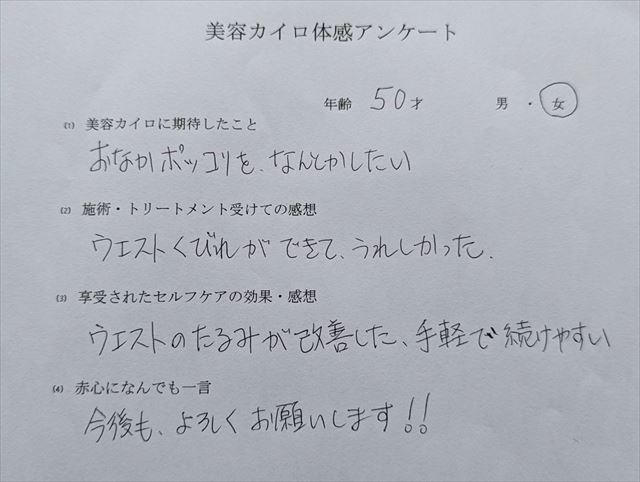 美容カイロ体感アンケート
年齢 50才 男・女
(1) 美容カイロに期待したこと
おなかポッコリを、なんとかしたい
(2) 施術・トリートメント受けての感想
ウエストくびれができて、うれしかった.
(3) 享受されたセルフケアの効果・感想
ウエストのたるみが改善した、手軽で続けやすい
(4) 赤心になんでも一言
今後も、よろしくお願いします!!